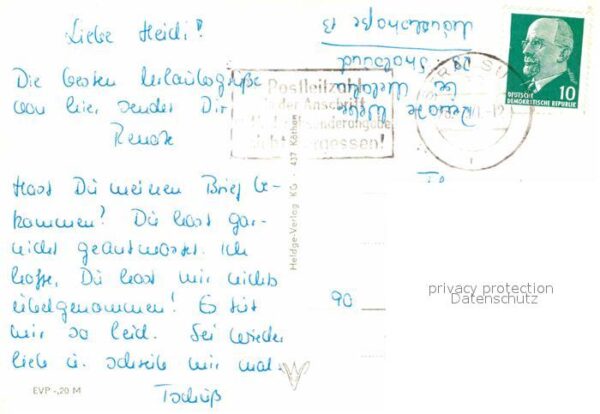 Liebe Heidi!
Die besten Urlaubsgrüße
von hier sendet Dir
Renate
Hast Du meinen Brief be-
kommen? Du hast gar-
nicht geantwortet. Ich
hoffe, Du hast mir nichts
übelgenommen! Es tut
mir so leid. Sei wieder
lieb u. schreib mir mal.
Tschüß
EVP -,20 M
Heldge-Verlag KG · 437 Köthen
Renate
bei
23 Stralsund
13
Postleitzahl
in der Anschrift
nicht vergessen!
10
DEUTSCHE
DEMOKRATISCHE REPUBLIK
90
privacy protection
Datenschutz